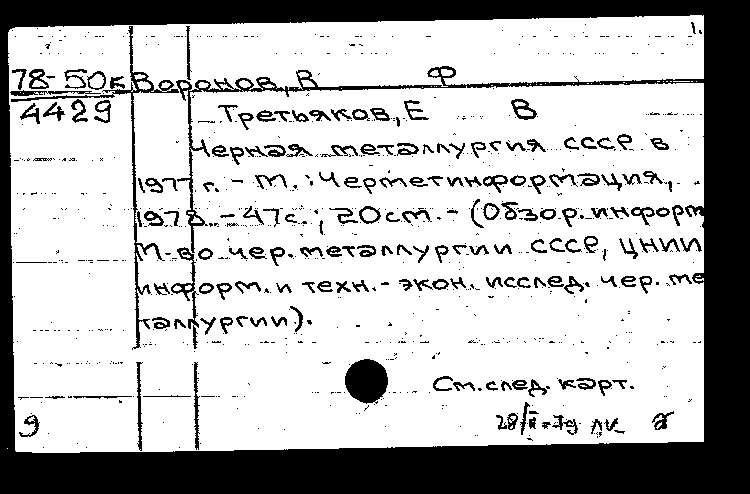 1.
78-50к Воронов, В Ф
4429 Третьяков, Е В
Черная металлургия СССР в
1977 г. - М. : Черметинформация,
1978. - 47с. ; 20см. - (Обзор. информ
М-во чер. металлургии СССР, ЦНИИ
информ. и техн.- экон. исслед. чер. ме
таллургии).
См. след. карт.
9